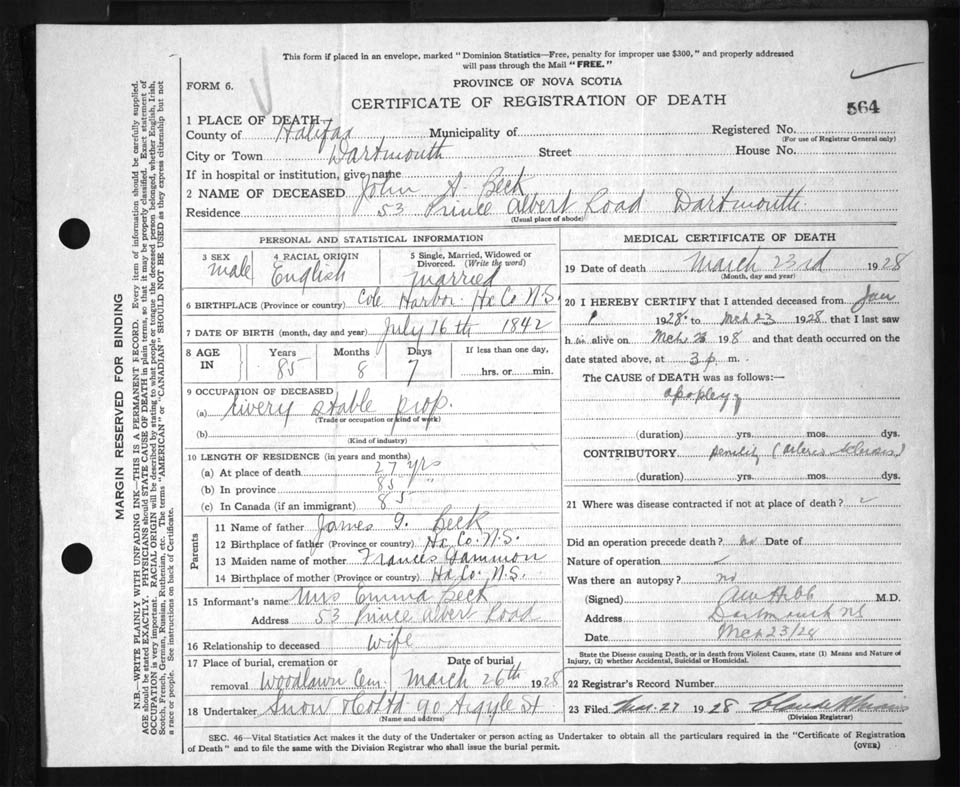 This form if placed in an envelope, marked "Dominion Statistics—Free, penalty for improper use $300," and properly addressed
will pass through the Mail "FREE."
FORM 6.
PROVINCE OF NOVA SCOTIA
CERTIFICATE OF REGISTRATION OF DEATH
564
1 PLACE OF DEATH
County of Halifax Municipality of Registered No.
(For use of Registrar General only)
City or Town Dartmouth Street House No.
If in hospital or institution, give name
2 NAME OF DECEASED John A. Beck
Residence 53 Prince Albert Road Dartmouth
(Usual place of abode)
PERSONAL AND STATISTICAL INFORMATION
3 SEX 4 RACIAL ORIGIN 5 Single, Married, Widowed or
Divorced. (Write the word)
male English married
6 BIRTHPLACE (Province or country) Cole Harbor Hx Co N.S.
7 DATE OF BIRTH (month, day and year) July 16th 1842
8 AGE IN Years Months Days If less than one day,
85 8 7 hrs. or min.
9 OCCUPATION OF DECEASED
(a) Livery stable prop.
(Trade or occupation or kind of work)
(b)
(Kind of industry)
10 LENGTH OF RESIDENCE (in years and months)
(a) At place of death 27 yrs
(b) In province 85 "
(c) In Canada (if an immigrant) 85
Parents
11 Name of father James G. Beck
12 Birthplace of father (Province or country) Hx Co. N.S.
13 Maiden name of mother Frances Gammon
14 Birthplace of mother (Province or country) Hx Co. N.S.
15 Informant's name Mrs Emma Beck
Address 53 Prince Albert Road
16 Relationship to deceased Wife
17 Place of burial, cremation or Date of burial
removal Woodlawn Cem. March 26th 1928
18 Undertaker Snow & Co Ltd 90 Argyle St
(Name and address)
MEDICAL CERTIFICATE OF DEATH
19 Date of death March 23rd 1928
(Month, day and year)
20 I HEREBY CERTIFY that I attended deceased from Jan
1 1928 to Mch 23 1928 that I last saw
h im alive on Mch 23 1928 and that death occurred on the
date stated above, at 3 p m.
The CAUSE of DEATH was as follows:—
apoplexy
(duration) yrs. mos. dys.
CONTRIBUTORY senility (Arterio Sclerosis)
(duration) yrs. mos. dys.
21 Where was disease contracted if not at place of death?
Did an operation precede death? no Date of
Nature of operation
Was there an autopsy? no
(Signed) M.D.
Address Dartmouth NS
Date Mch 23/28
State the Disease causing Death, or in death from Violent Causes, state (1) Means and Nature of
Injury, (2) whether Accidental, Suicidal or Homicidal.
22 Registrar's Record Number
23 Filed Mar. 27 1928
(Division Registrar)
SEC. 46—Vital Statistics Act makes it the duty of the Undertaker or person acting as Undertaker to obtain all the particulars required in the "Certificate of Registration
of Death" and to file the same with the Division Registrar who shall issue the burial permit.
(OVER)
MARGIN RESERVED FOR BINDING
N.B.—WRITE PLAINLY WITH UNFADING INK—THIS IS A PERMANENT RECORD. Every item of information should be carefully supplied.
AGE should be stated EXACTLY. PHYSICIANS should STATE CAUSE OF DEATH in plain terms, so that it may be properly classified. Exact statement of
OCCUPATION is very important. RACIAL ORIGIN will be described by stating to what people or tongue the deceased person belonged, whether English, Irish,
Scotch, French, German, Russian, Ruthenian, etc. The terms "AMERICAN" or "CANADIAN" SHOULD NOT BE USED as they express citizenship but not
a race or people. See instructions on back of Certificate.